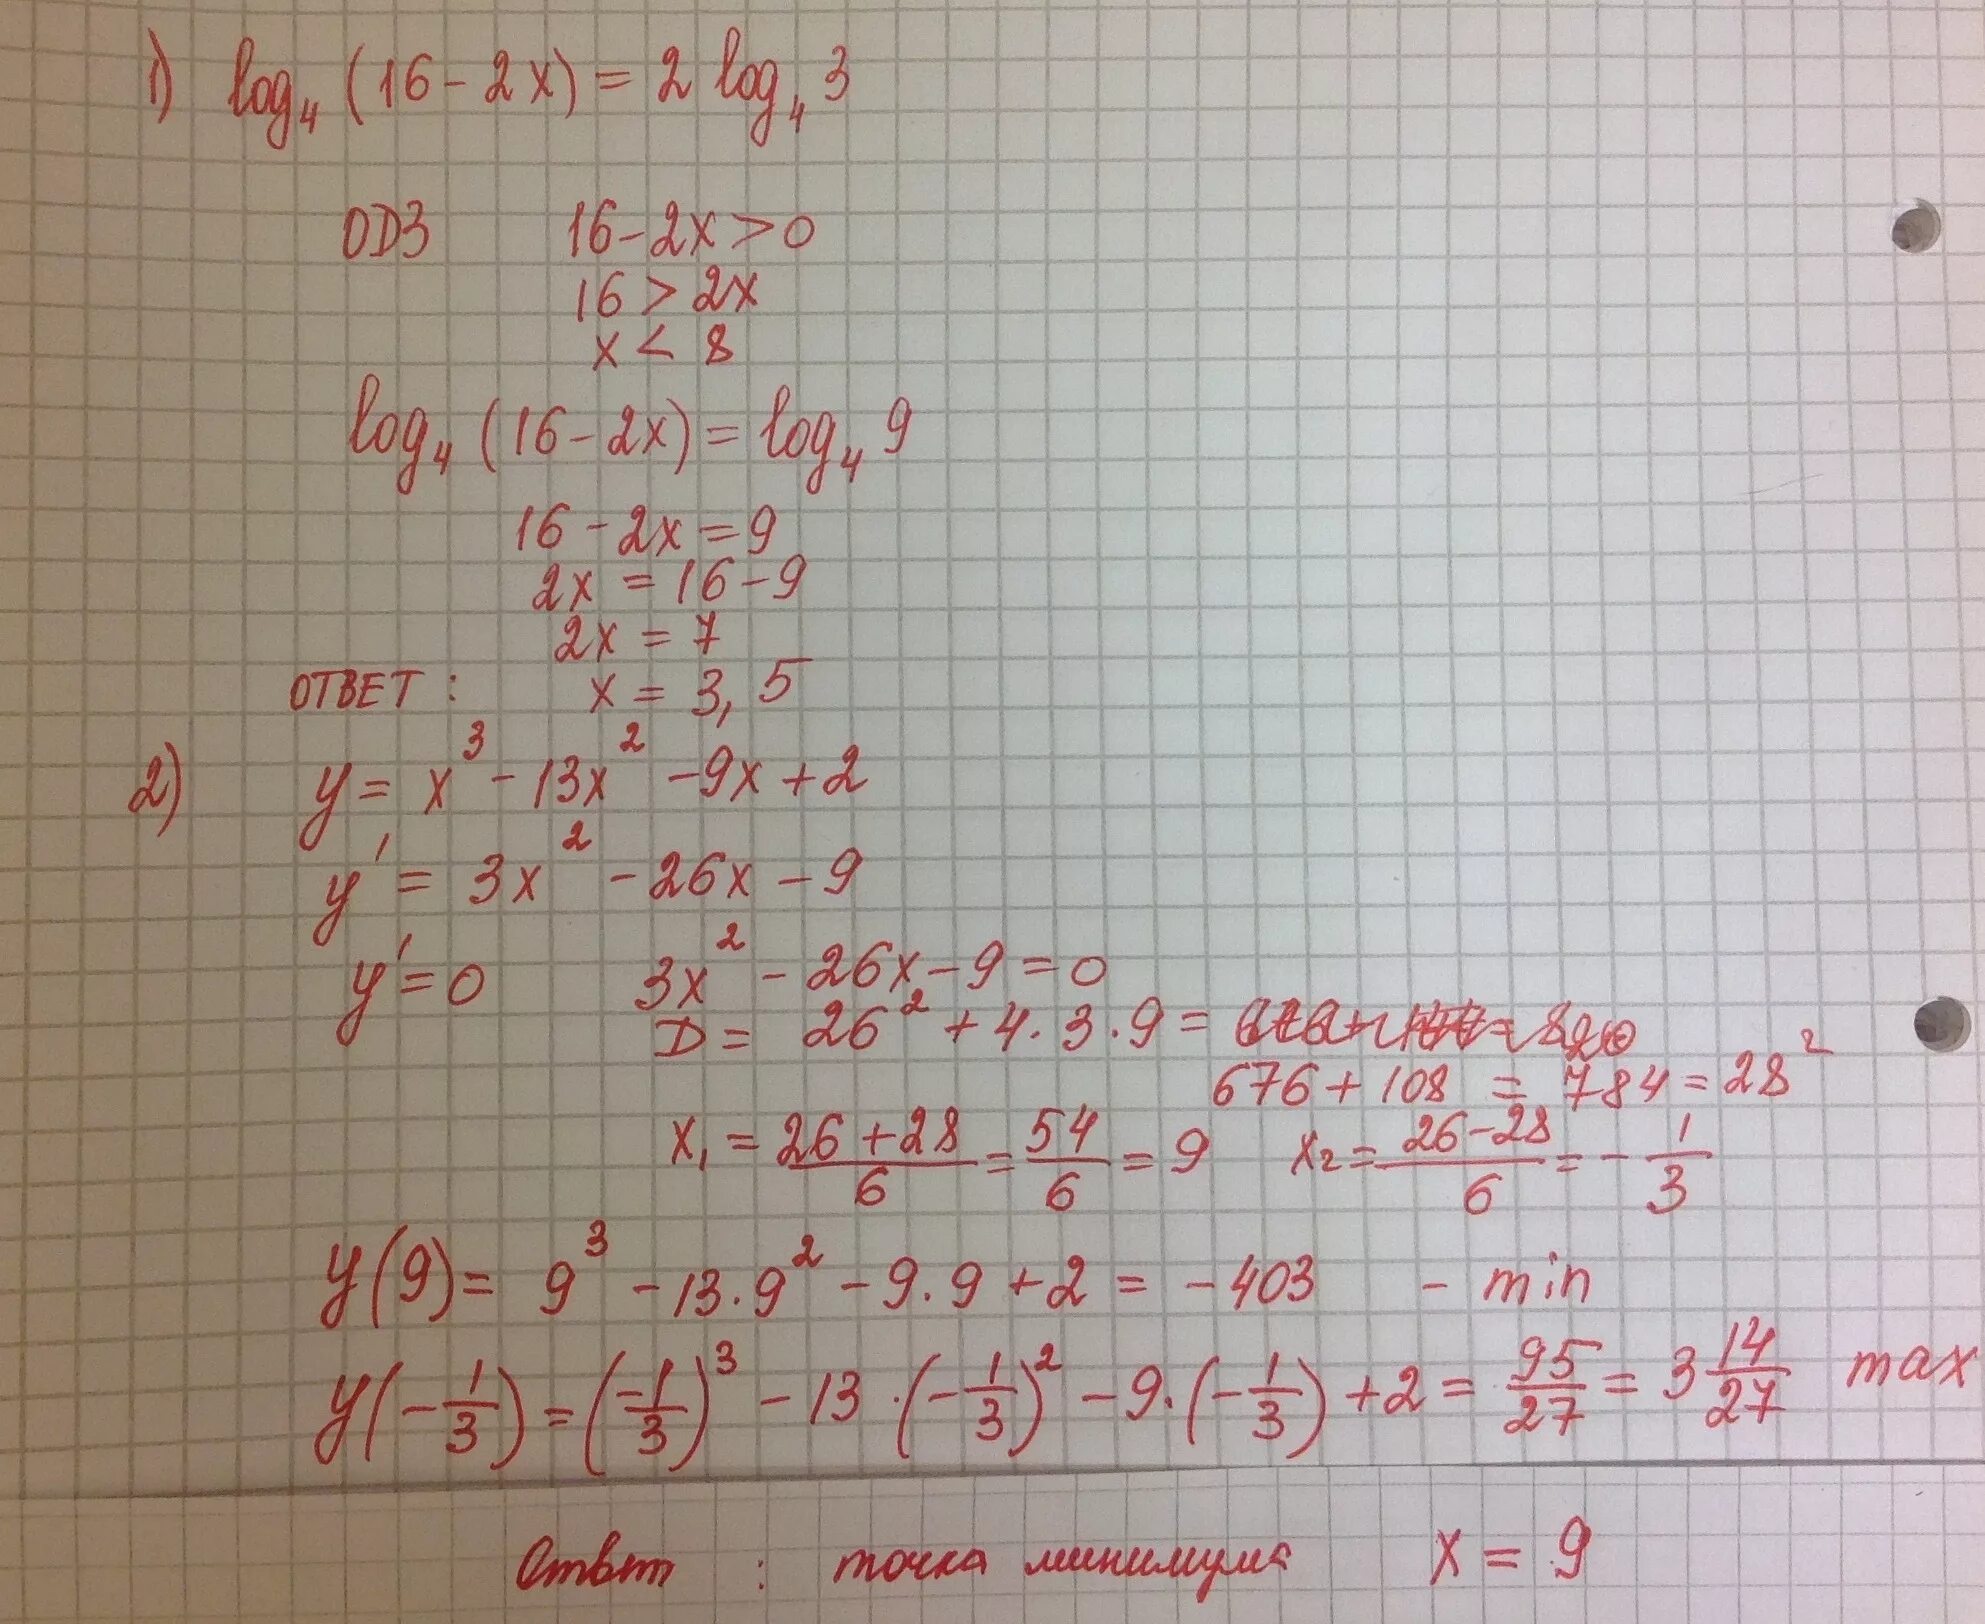 1) log₄ (16 - 2x) = 2 log₄ 3
ОДЗ 16 - 2x > 0
16 > 2x
x < 8
log₄ (16 - 2x) = log₄ 9
16 - 2x = 9
2x = 16 - 9
2x = 7
ОТВЕТ : x = 3,5
2) y = x³ - 13x² - 9x + 2
y' = 3x² - 26x - 9
y' = 0 3x² - 26x - 9 = 0
D = 26² + 4·3·9 =
676 + 108 = 784 = 28²
x₁ = (26 + 28)/6 = 54/6 = 9 x₂ = (26 - 28)/6 = - 1/3
y(9) = 9³ - 13·9² - 9·9 + 2 = - 403 - min
y(- 1/3) = (-1/3)³ - 13·(- 1/3)² - 9·(- 1/3) + 2 = 95/27 = 3 14/27 max
Ответ : точка минимума x = 9